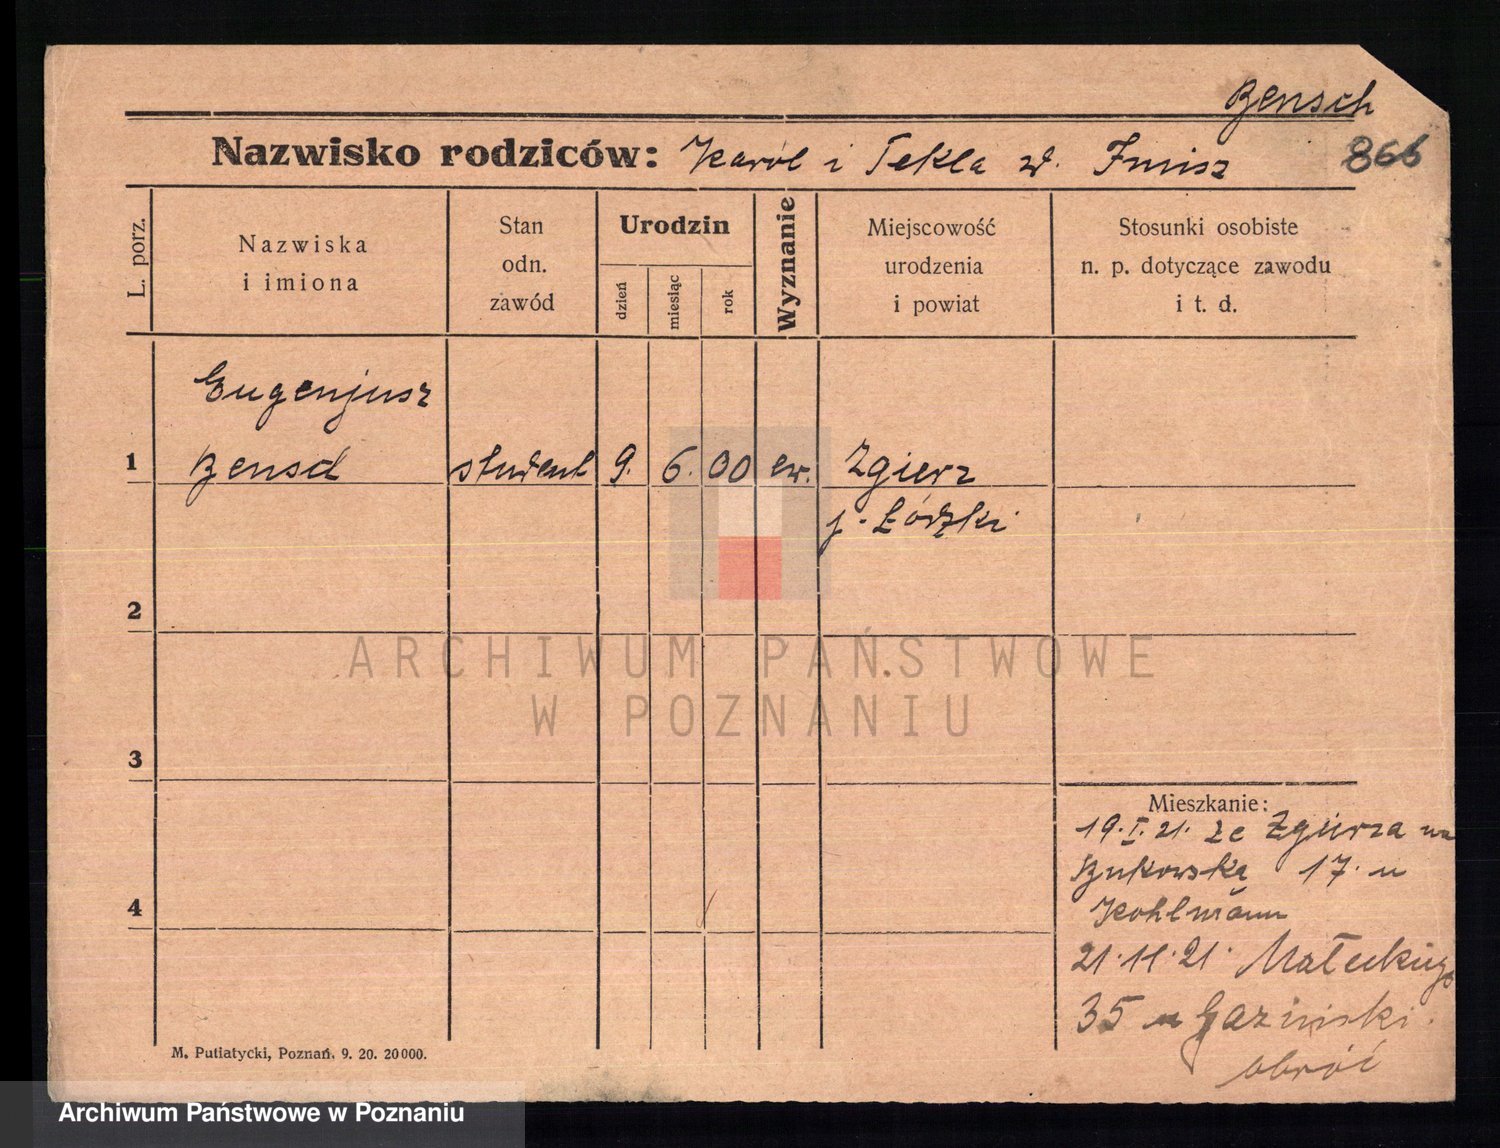 Bensch
866
Nazwisko rodziców: Karól i Tekla zd.
L. porz.
Nazwiska
i imiona
Stan
odn.
zawód
Urodzin
dzień
miesiąc
rok
Wyznanie
Miejscowość
urodzenia
i powiat
Stosunki osobiste
n. p. dotyczące zawodu
i t. d.
Eugenjusz
1 Bensch student 9. 6. 00 ew. Zgierz
p. Łódzki
2
3
4
Mieszkanie:
19. I. 21. ze Zgierza na
Bukowską 17. u
Kohlmann
21.11.21. Małeckiego
35 u
obróć
M. Putiatycki, Poznań. 9. 20. 20000.
ARCHIWUM PAŃSTWOWE
W POZNANIU
Archiwum Państwowe w Poznaniu